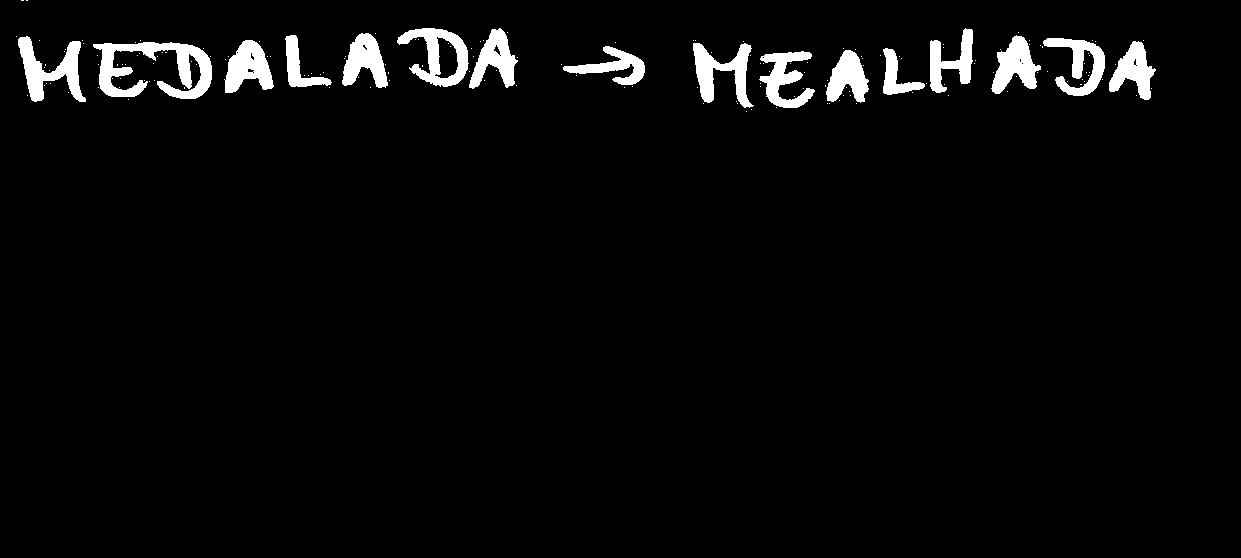 MEDALADA → MEALHADA